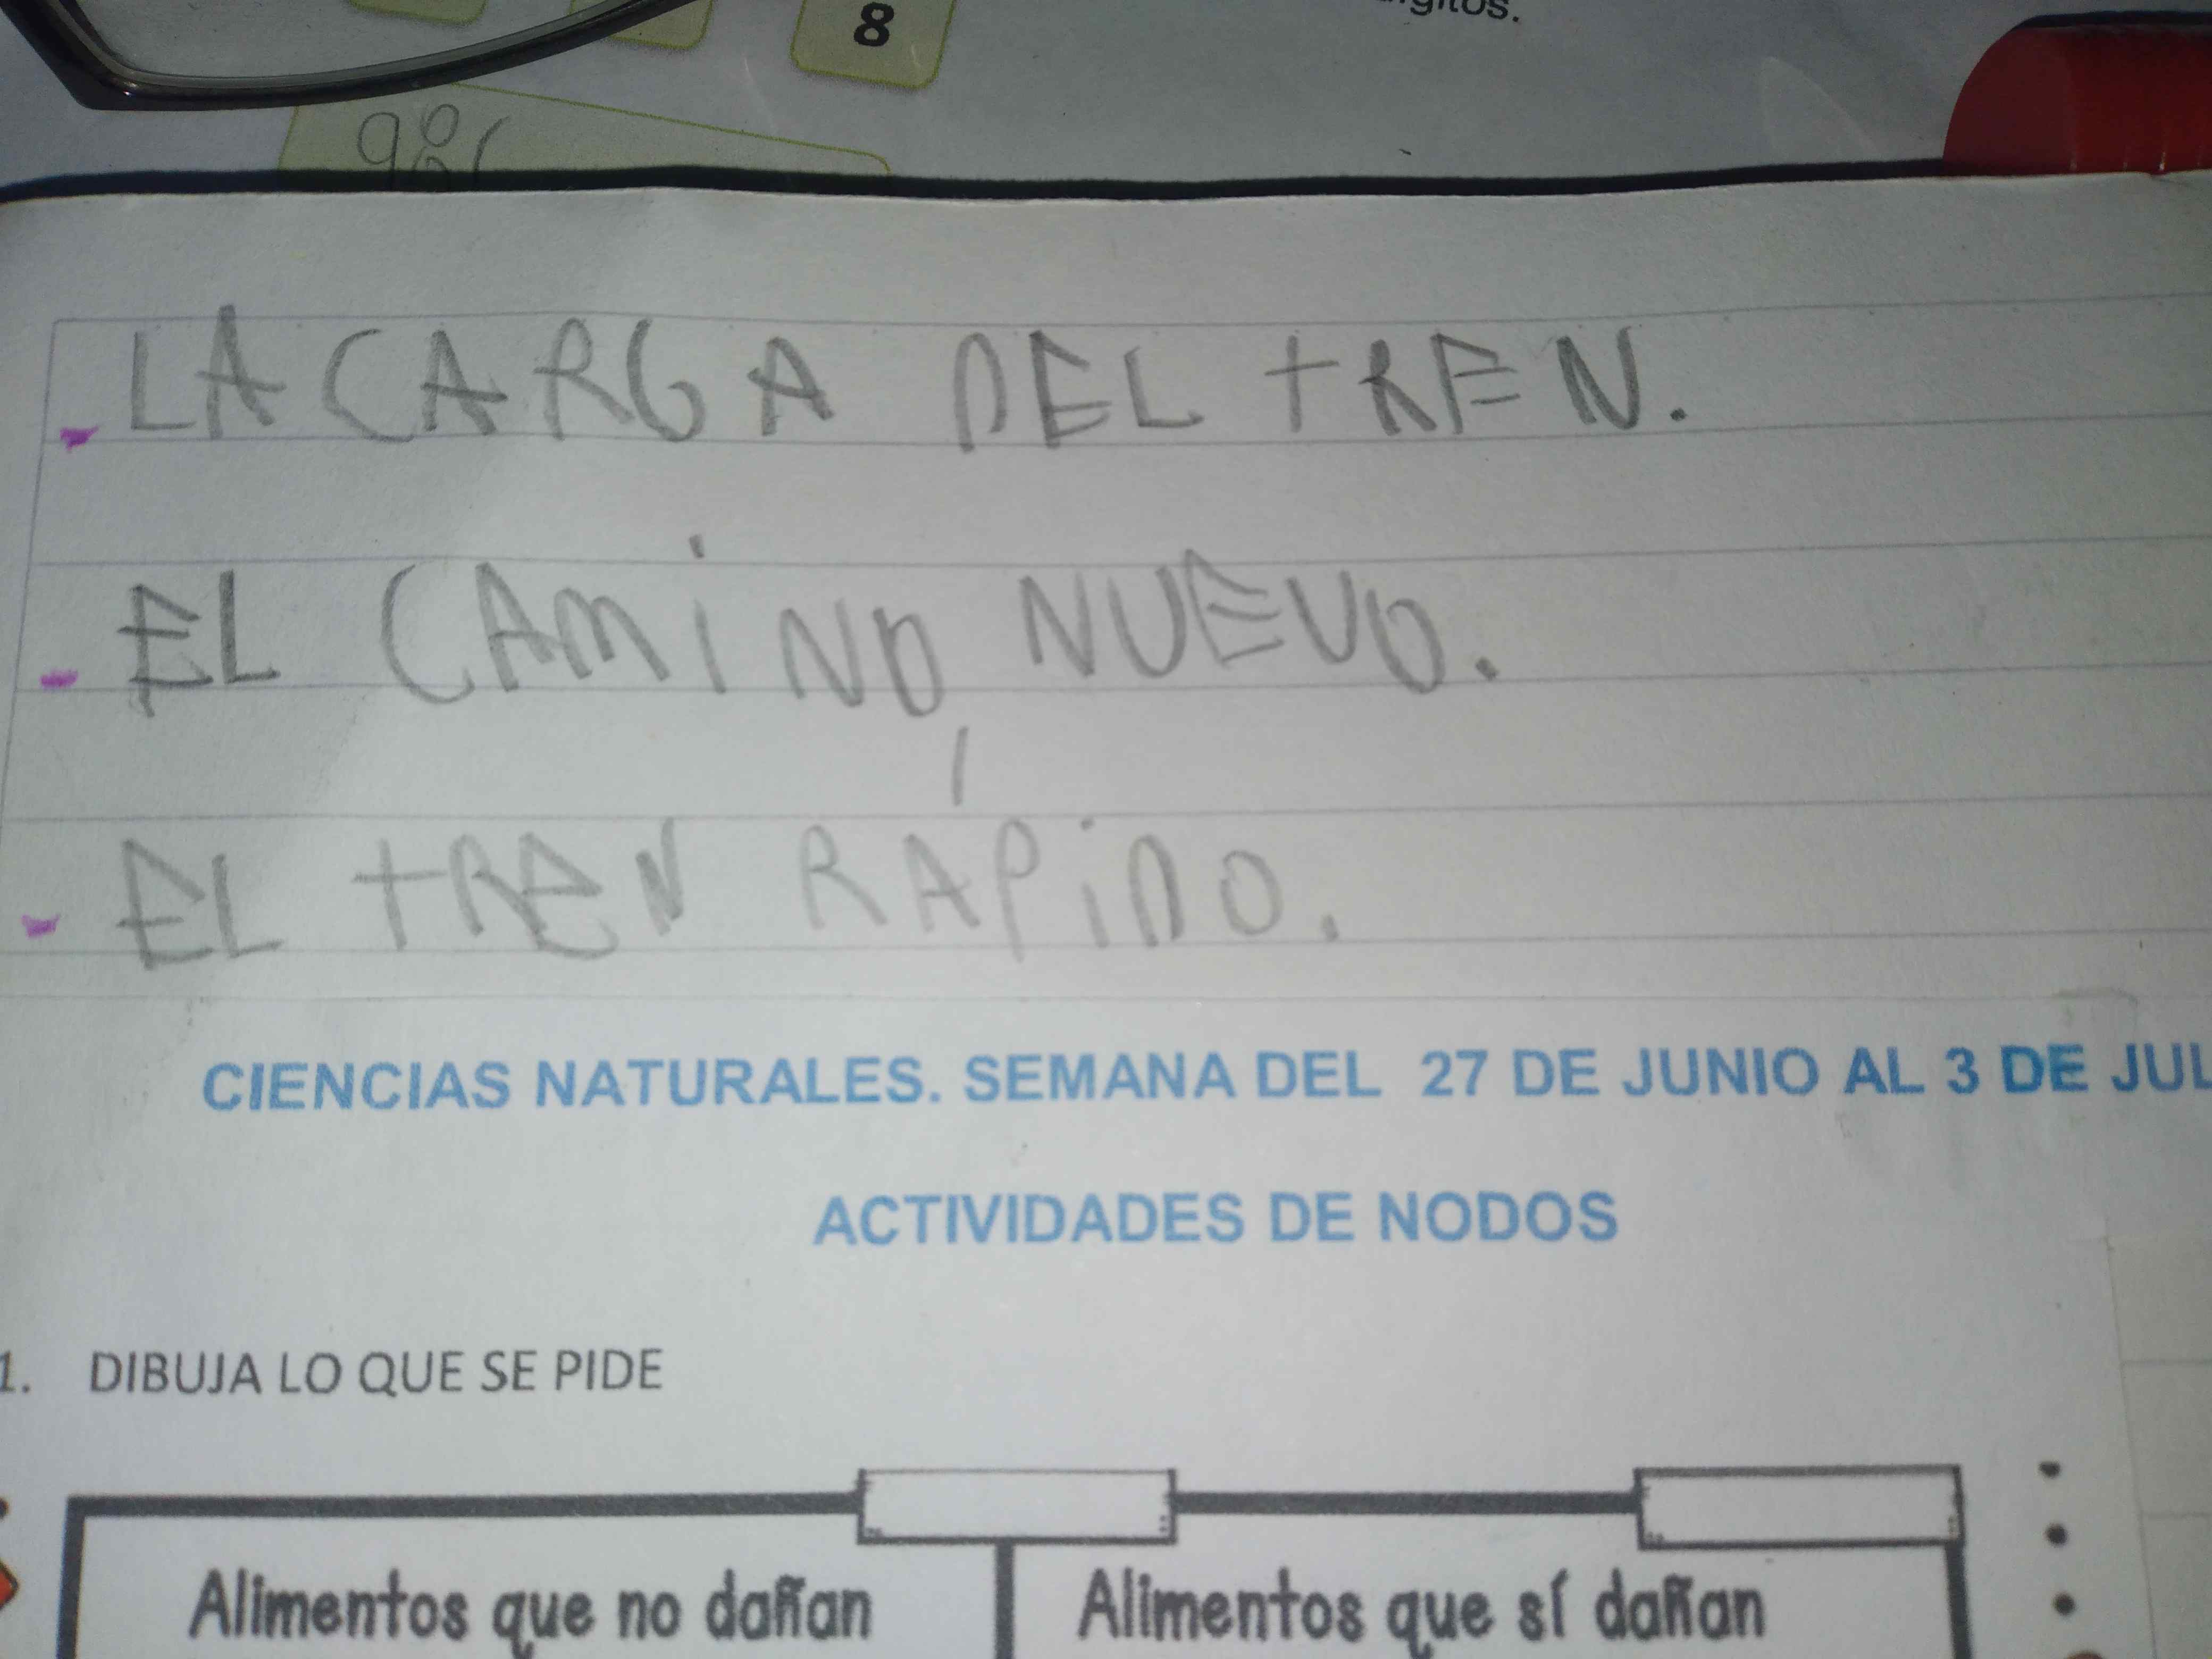 8
- LA CARGA DEL tREN.
- EL CAMiNO NUEVO.
- EL tREN RÁPiDO.
CIENCIAS NATURALES. SEMANA DEL 27 DE JUNIO AL 3 DE JUL
ACTIVIDADES DE NODOS
1. DIBUJA LO QUE SE PIDE
Alimentos que no dañan Alimentos que sí dañan